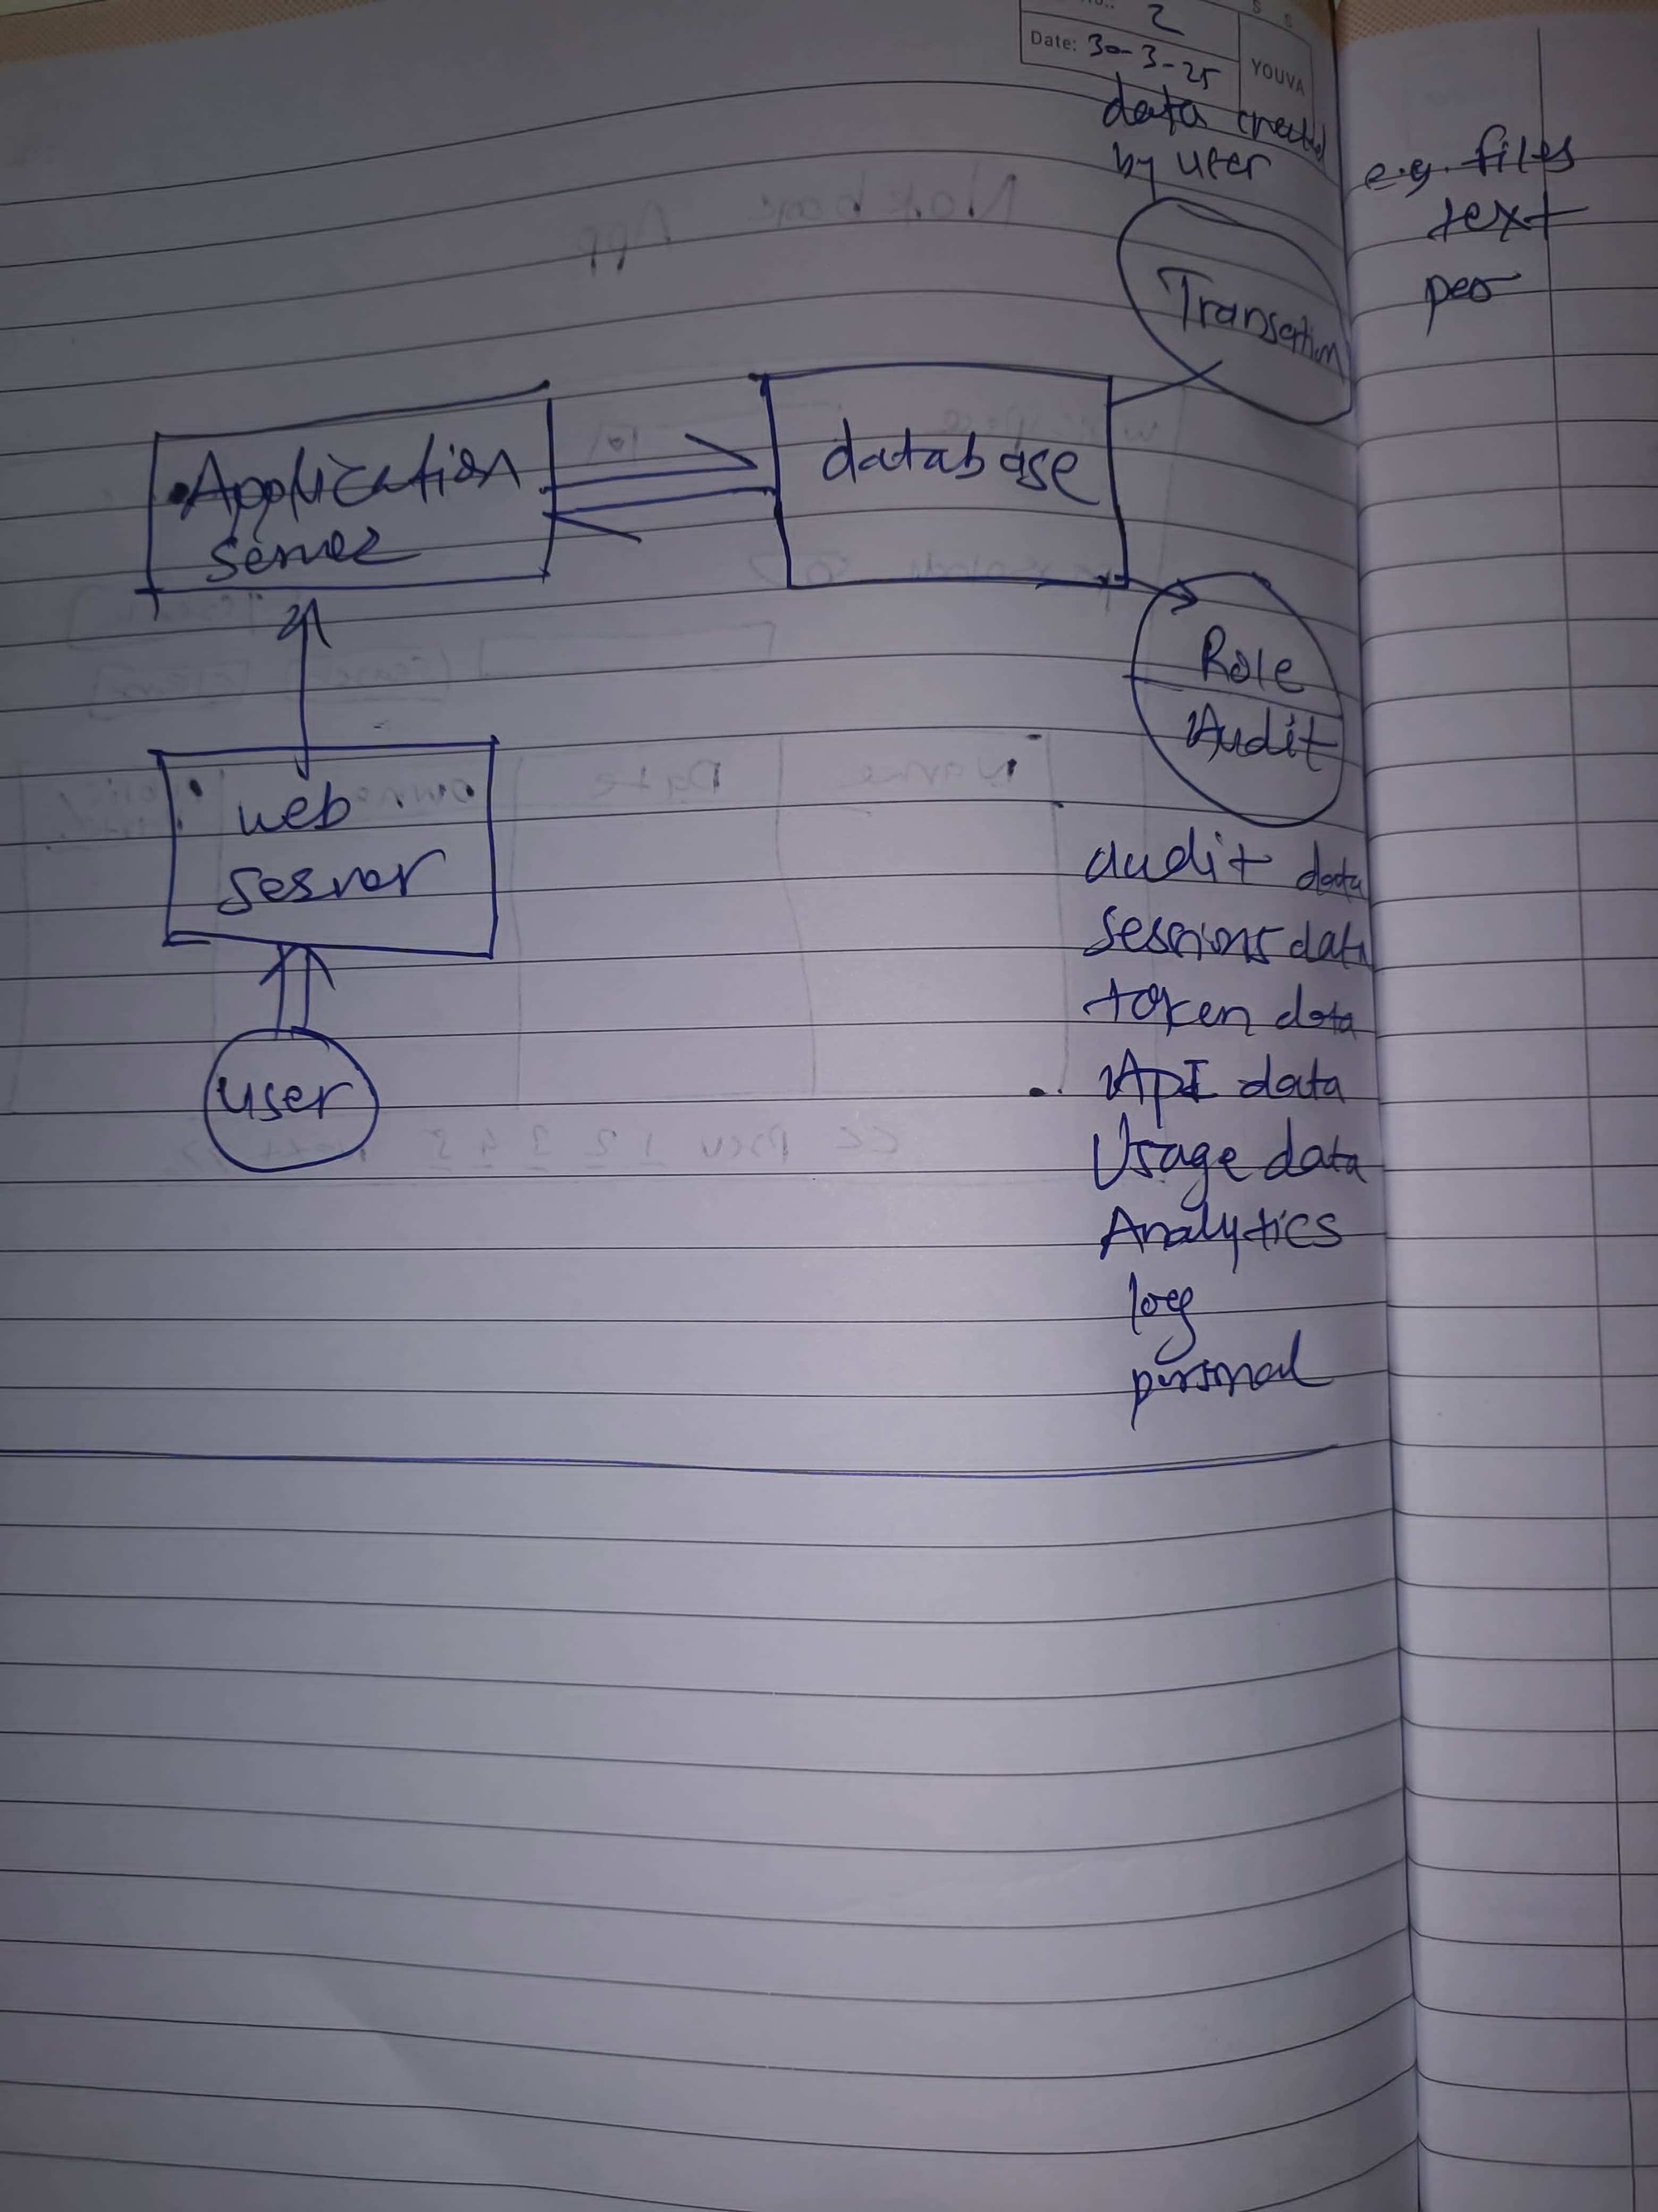 2
Date: 30-3-25
YOUVA
data created
by user
e.g. files
text
Transaction
Application
server
database
Role
Audit
web
server
user
audit data
sessions data
token data
API data
Usage data
Analytics
log
personal